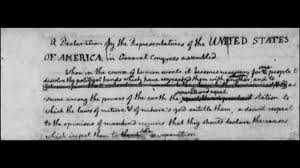 A Declaration by the Representatives of the UNITED STATES
OF AMERICA, in General Congress assembled.
When in the course of human events it becomes necessary for one people to
dissolve the political bands which have connected them with another, and to
assume among the powers of the earth the
which the laws of nature & of nature's god entitle them, a decent respect
to the opinions of mankind requires that they should declare the causes
which impel them to the separation.